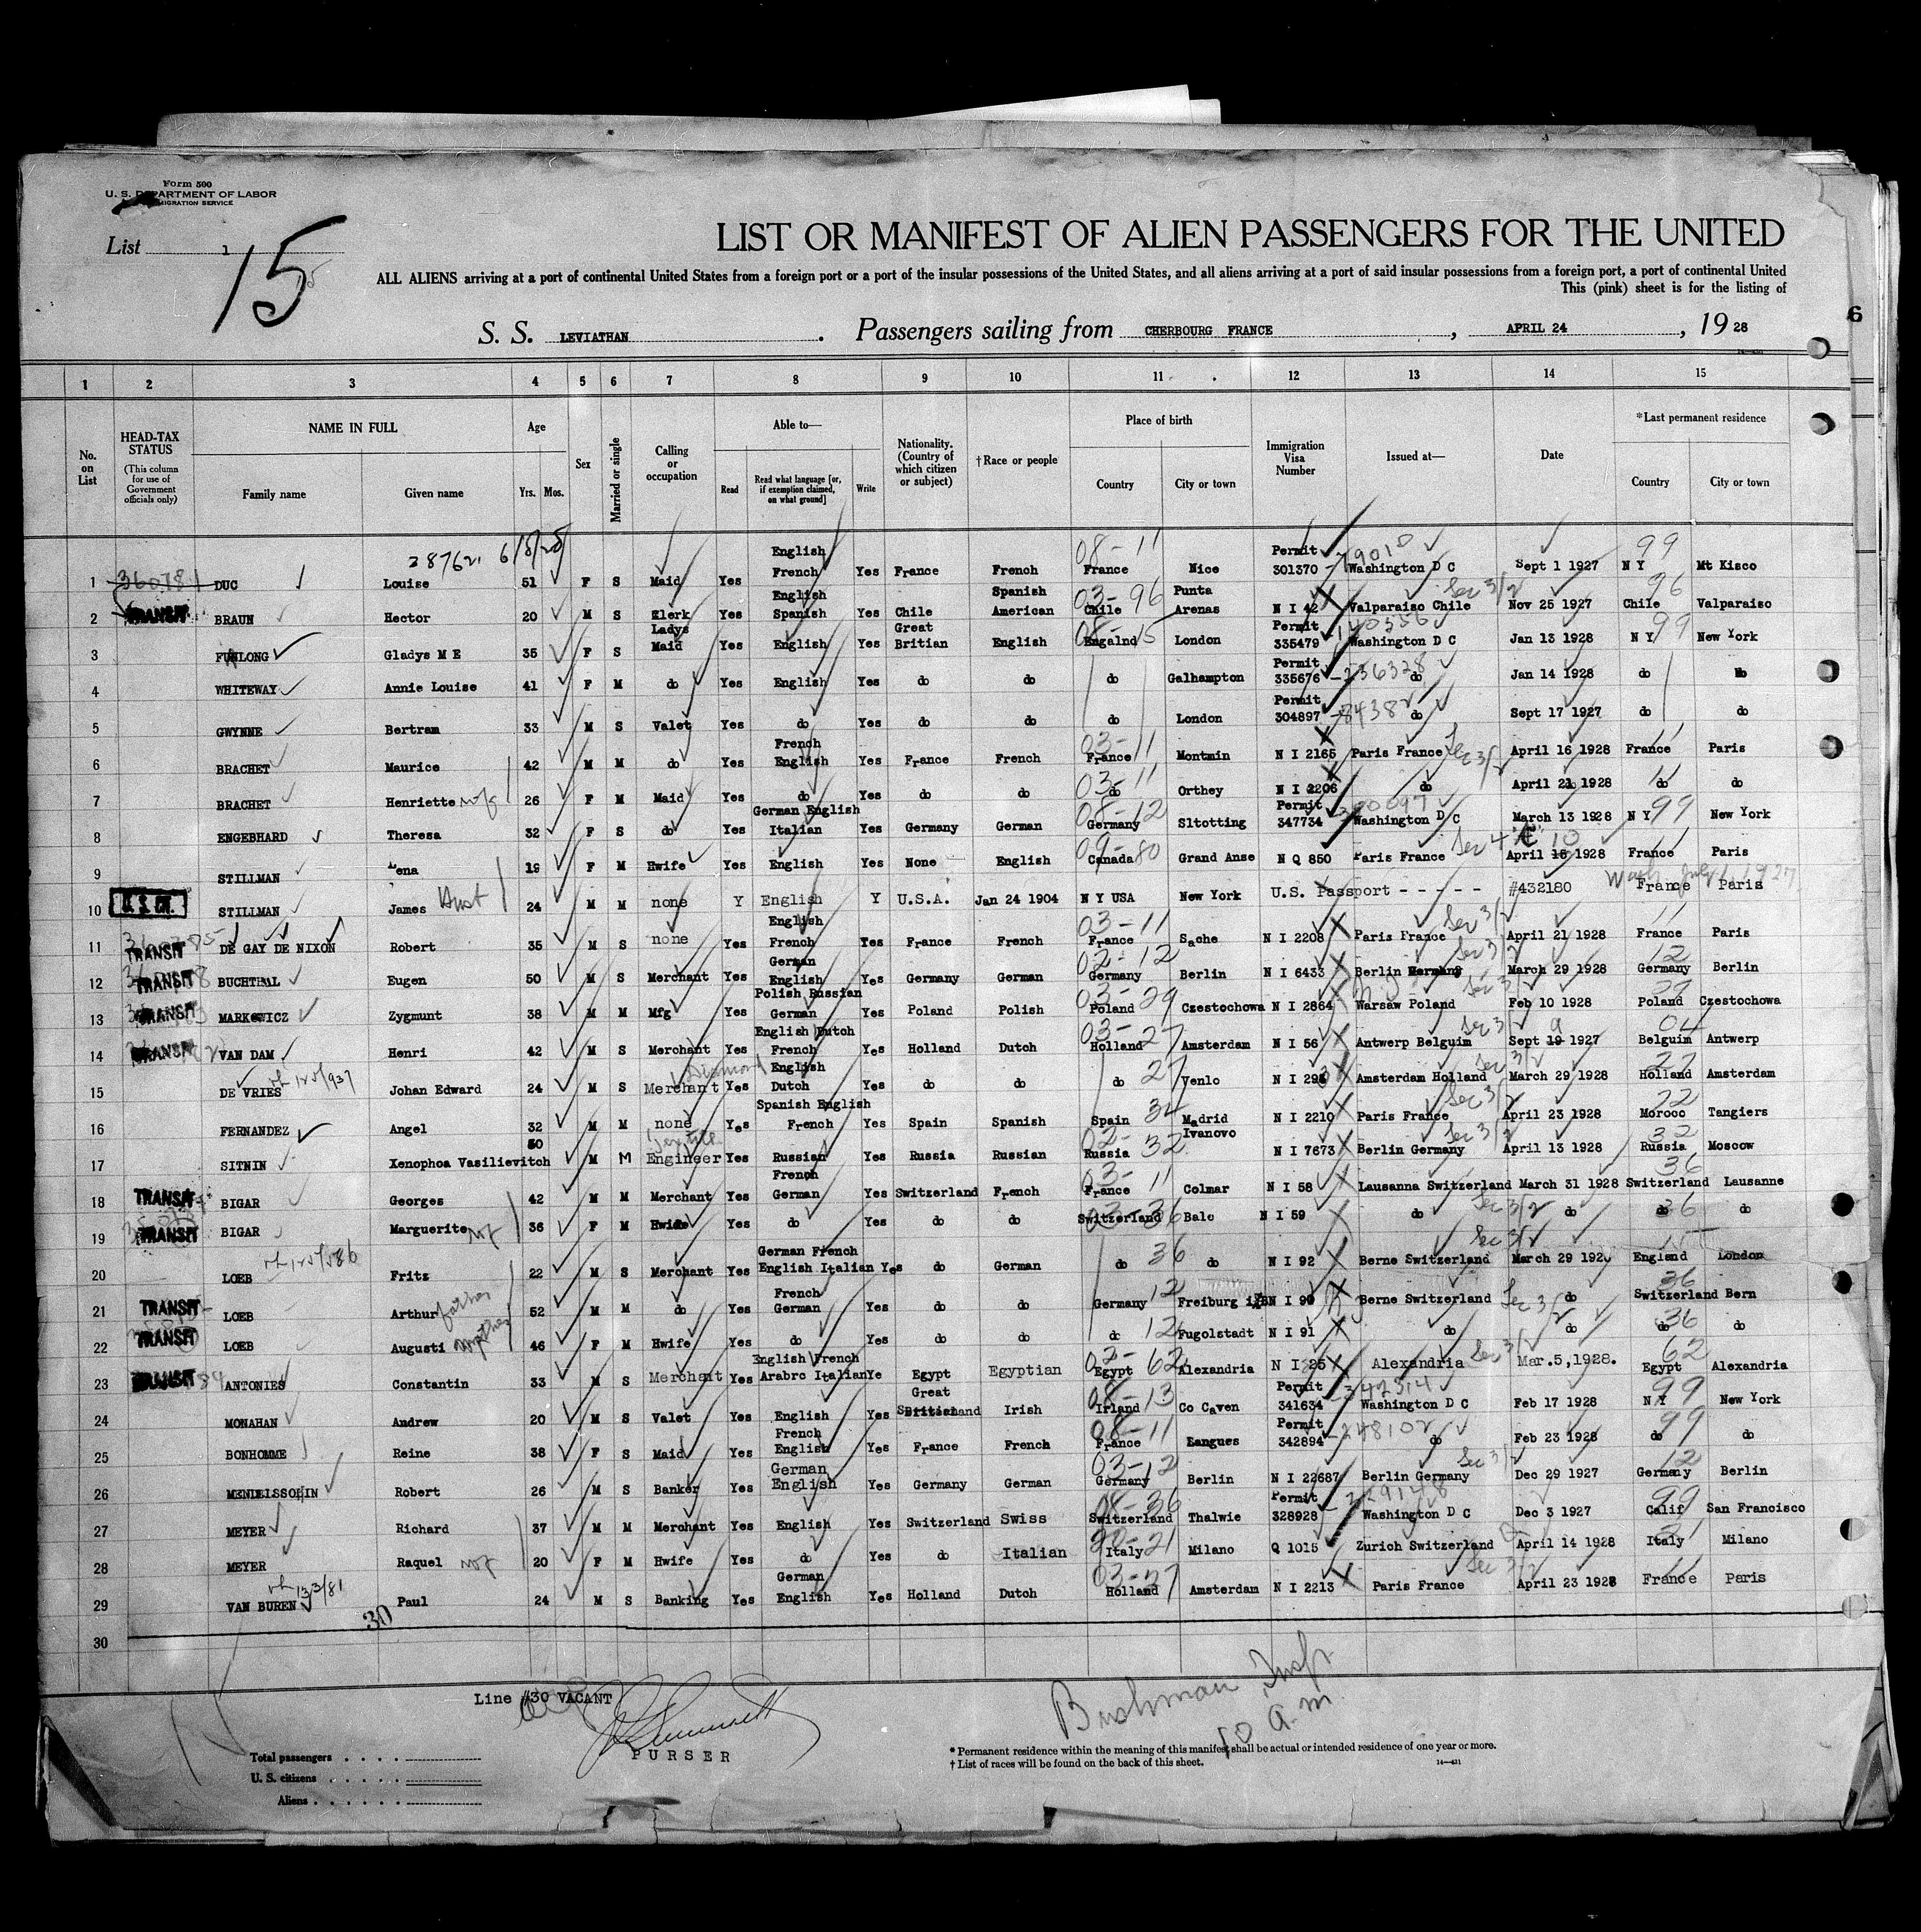 Form 500
U. S. DEPARTMENT OF LABOR
IMMIGRATION SERVICE
List 1
15
LIST OR MANIFEST OF ALIEN PASSENGERS FOR THE UNITED
ALL ALIENS arriving at a port of continental United States from a foreign port or a port of the insular possessions of the United States, and all aliens arriving at a port of said insular possessions from a foreign port, a port of continental United
This (pink) sheet is for the listing of
S. S. LEVIATHAN. Passengers sailing from CHERBOURG FRANCE, APRIL 24, 19 28
1 2 3 4 5 6 7 8 9 10 11 12 13 14 15
No. on List
HEAD-TAX STATUS (This column for use of Government officials only)
NAME IN FULL Family name Given name
Age Yrs. Mos.
Sex
Married or single
Calling or occupation
Able to— Read Read what language [or, if exemption claimed, on what ground] Write
Nationality. (Country of which citizen or subject)
† Race or people
Place of birth Country City or town
Immigration Visa Number
Issued at—
Date
*Last permanent residence Country City or town
1 DUC Louise 51 F S Maid Yes English French Yes France French 08-11 France Nice Permit 301370 Washington D C Sept 1 1927 99 N Y Mt Kisco
2 TRANSIT BRAUN Hector 20 M S Clerk Yes English Spanish Yes Chile Spanish American 03-96 Chile Punta Arenas N I 42 Valparaiso Chile Sec 3/2 Nov 25 1927 96 Chile Valparaiso
3 FURLONG Gladys M E 35 F S Ladys Maid Yes English Yes Great Britian English 08-15 Engalnd London Permit 335479 Washington D C Jan 13 1928 99 N Y New York
4 WHITEWAY Annie Louise 41 F M do Yes English Yes do do do Galhampton Permit 335676 -236328 do Jan 14 1928 do do
5 GWYNNE Bertram 33 M S Valet Yes do Yes do do do London Permit 304897 do Sept 17 1927 do do
6 BRACHET Maurice 42 M M do Yes French English Yes France French 03-11 France Montmin N I 2165 Paris France Sec 3/2 April 16 1928 11 France Paris
7 BRACHET Henriette wf 26 F M Maid Yes do Yes do do 03-11 do Orthey N I 2206 do April 21 1928 11 do do
8 ENGEBHARD Theresa 32 F S do Yes German English Italian Yes Germany German 08-12 Germany Sltotting Permit 347734 Washington D C March 13 1928 N Y 99 New York
9 STILLMAN Lena 19 F M Hwife Yes English Yes None English 09-80 Canada Grand Anse N Q 850 Paris France Sec 4 April 10 1928 11 France Paris
10 U. S. CIT. STILLMAN James Hust 24 M M none Y English Y U.S.A. Jan 24 1904 N Y USA New York U.S. Passport - - - - - #432180 Wash July 1, 1927 France Paris
11 TRANSIT DE GAY DE NIXON Robert 35 M S none Yes English French Yes France French 03-11 France Sache N I 2208 Paris France Sec 3/2 April 21 1928 11 France Paris
12 TRANSIT BUCHTHAL Eugen 50 M S Merchant Yes German English Yes Germany German 02-12 Germany Berlin N I 6433 Berlin Germany Sec 3/2 March 29 1928 12 Germany Berlin
13 TRANSIT MARKOWICZ Zygmunt 38 M M Mfg Yes Polish Russian German Yes Poland Polish 03-29 Poland Czestochowa N I 2864 Warsaw Poland Sec 3/2 Feb 10 1928 29 Poland Czestochowa
14 TRANSIT VAN DAM Henri 42 M S Merchant Yes English Dutch French Yes Holland Dutch 03-27 Holland Amsterdam N I 56 Antwerp Belguim Sec 3/2 Sept 19 1927 04 Belguim Antwerp
15 DE VRIES Johan Edward 24 M S Diamond Merchant Yes English Dutch Yes do do do 27 Venlo N I 293 Amsterdam Holland Sec 3/2 March 29 1928 27 Holland Amsterdam
16 FERNANDEZ Angel 32 M M none Yes Spanish English French Yes Spain Spanish Spain 34 Madrid N I 2210 Paris France Sec 3/2 April 23 1928 Moroco Tangiers
17 SITNIN Xenophoa Vasilievitch 50 M M Textile Engineer Yes Russian Yes Russia Russian 02-32 Russia Ivanovo N I 7673 Berlin Germany Sec 3/2 April 13 1928 32 Russia Moscow
18 TRANSIT BIGAR Georges 42 M M Merchant Yes French German Yes Switzerland French 03-11 France Colmar N I 58 Lausanna Switzerland March 31 1928 36 Switzerland Lausanne
19 TRANSIT BIGAR Marguerite wf 36 F M Hwife Yes do Yes do do 03-36 Switzerland Bale N I 59 do Sec 3/2 do 36 do do
20 LOEB Fritz 22 M S Merchant Yes German French English Italian Yes do German do 36 do N I 92 Berne Switzerland Sec 3/2 March 29 1928 England London
21 TRANSIT LOEB Arthur father 52 M M do Yes French German Yes do do Germany 12 Freiburg N I 90 Berne Switzerland Sec 3/2 do 36 Switzerland Bern
22 TRANSIT LOEB Augusti mother 46 F M Hwife Yes do Yes do do do 12 Fugolstadt N I 91 do do 36 do do
23 TRANSIT ANTONIES Constantin 33 M S Merchant Yes English French Arabrc Italian Ye Egypt Egyptian 02-62 Egypt Alexandria N I 25 Alexandria Sec 3/2 Mar.5,1928. 62 Egypt Alexandria
24 MONAHAN Andrew 20 M S Valet Yes English Yes Great Irish 08-13 Irland Co Caven Permit 341634 -342314 Washington D C Feb 17 1928 99 N Y New York
25 BONHOMME Reine 38 F S Maid Yes French English Yes France French 08-11 France Eangues Permit 342894 -248102 do Feb 23 1928 99 do do
26 MENDLISSOHIN Robert 26 M S Banker Yes German English Yes Germany German 03-12 Germany Berlin N I 22687 Berlin Germany Sec 3/2 Dec 29 1927 12 Germany Berlin
27 MEYER Richard 37 M M Merchant Yes English Yes Switzerland Swiss 08-36 Switzerland Thalwie Permit 328928 Washington D C Dec 3 1927 99 Calif San Francisco
28 MEYER Raquel wf 20 F M Hwife Yes do Yes do Italian 20-21 Italy Milano Q 1015 Zurich Switzerland April 14 1928 21 Italy Milano
29 VAN BUREN Paul 24 M S Banking Yes German English Yes Holland Dutch 03-27 Holland Amsterdam N I 2213 Paris France Sec 3/2 April 23 1928 11 France Paris
30
30
Line #30 VACANT
PURSER
Bushman Insp
10 a.m.
Total passengers
U. S. citizens
Aliens
* Permanent residence within the meaning of this manifest shall be actual or intended residence of one year or more.
† List of races will be found on the back of this sheet.
14—431